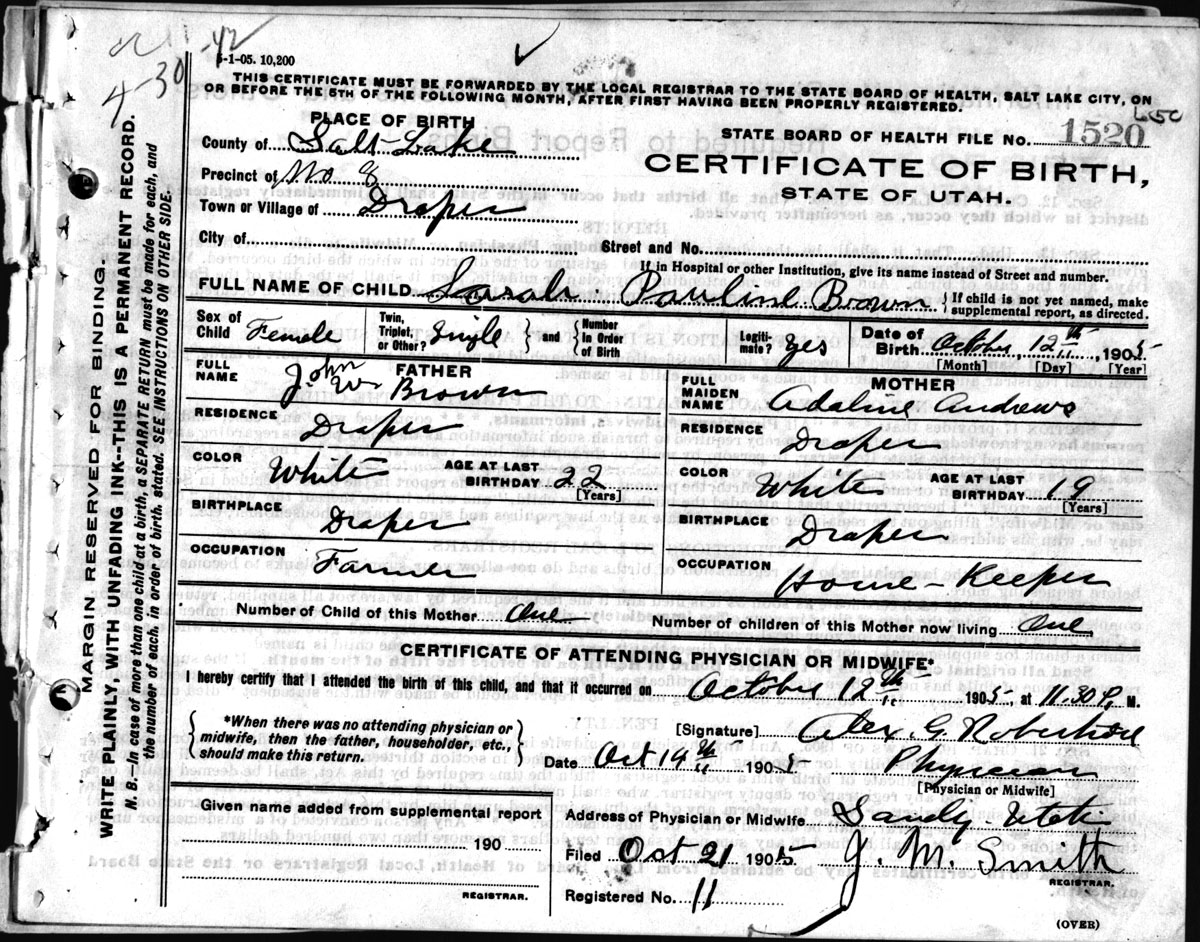 4-30
5-1-05. 10,200
THIS CERTIFICATE MUST BE FORWARDED BY THE LOCAL REGISTRAR TO THE STATE BOARD OF HEALTH, SALT LAKE CITY, ON
OR BEFORE THE 5TH OF THE FOLLOWING MONTH, AFTER FIRST HAVING BEEN PROPERLY REGISTERED.
PLACE OF BIRTH
STATE BOARD OF HEALTH FILE No. 1520
County of Salt Lake
CERTIFICATE OF BIRTH,
Precinct of No. 8
STATE OF UTAH.
Town or Village of Draper
City of
Street and No.
If in Hospital or other Institution, give its name instead of Street and number.
FULL NAME OF CHILD Sarah Pauline Brown { If child is not yet named, make supplemental report, as directed.
Sex of Child Female Twin, Triplet, or Other? Single } and { Number In Order of Birth Legiti-mate? Yes Date of Birth October 12th 1905
[Month] [Day] [Year]
FATHER
FULL NAME John W. Brown
MOTHER
FULL MAIDEN NAME Adaline Andrews
RESIDENCE Draper
RESIDENCE Draper
COLOR White AGE AT LAST BIRTHDAY 22 [Years]
COLOR White AGE AT LAST BIRTHDAY 19 [Years]
BIRTHPLACE Draper
BIRTHPLACE Draper
OCCUPATION Farmer
OCCUPATION House Keeper
Number of Child of this Mother One Number of children of this Mother now living One
CERTIFICATE OF ATTENDING PHYSICIAN OR MIDWIFE*
I hereby certify that I attended the birth of this child, and that it occurred on October 12th 1905, at 11.30 P. M.
{ *When there was no attending physician or midwife, then the father, householder, etc., should make this return. }
[Signature] Alex. G. Robertson
Date Oct 14th 1905 Physician
[Physician or Midwife]
Given name added from supplemental report
190
REGISTRAR.
Address of Physician or Midwife Sandy Utah
Filed Oct 21 1905 J. M. Smith
REGISTRAR.
Registered No. 11
(OVER)
MARGIN RESERVED FOR BINDING.
WRITE PLAINLY WITH UNFADING INK--THIS IS A PERMANENT RECORD.
N. B.--In case of more than one child at a birth, a SEPARATE RETURN must be made for each, and
the number of each, in order of birth, stated. SEE INSTRUCTIONS ON OTHER SIDE.